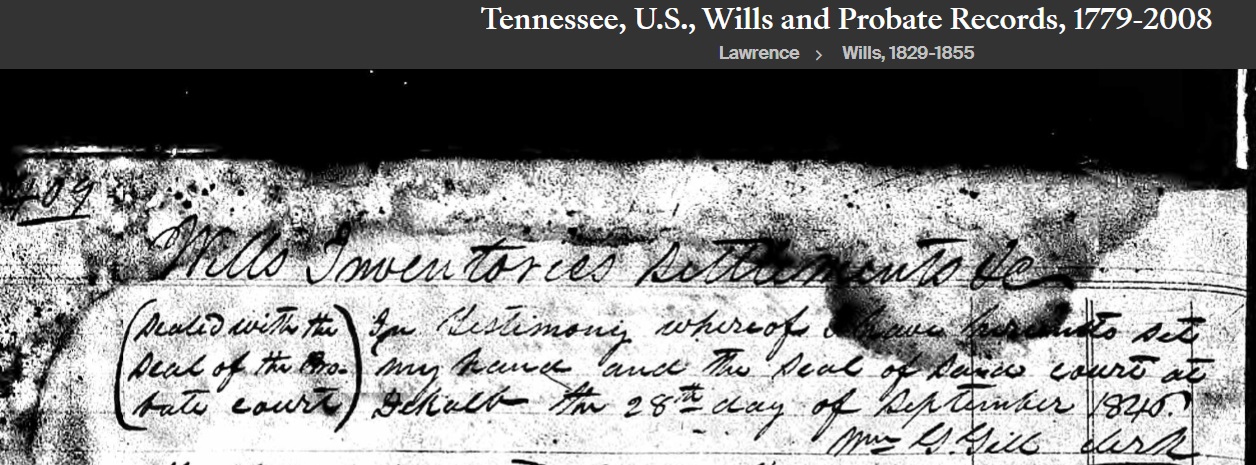 Tennessee, U.S., Wills and Probate Records, 1779-2008
Lawrence > Wills, 1829-1855
409
Wills Inventories Settlements &c
(Sealed with the
Seal of the Pro-
bate court)
In Testimony whereof I have hereunto set
my hand and the Seal of said court at
Dekalb the 28th day of September 1840.
Wm G. Gill Clerk